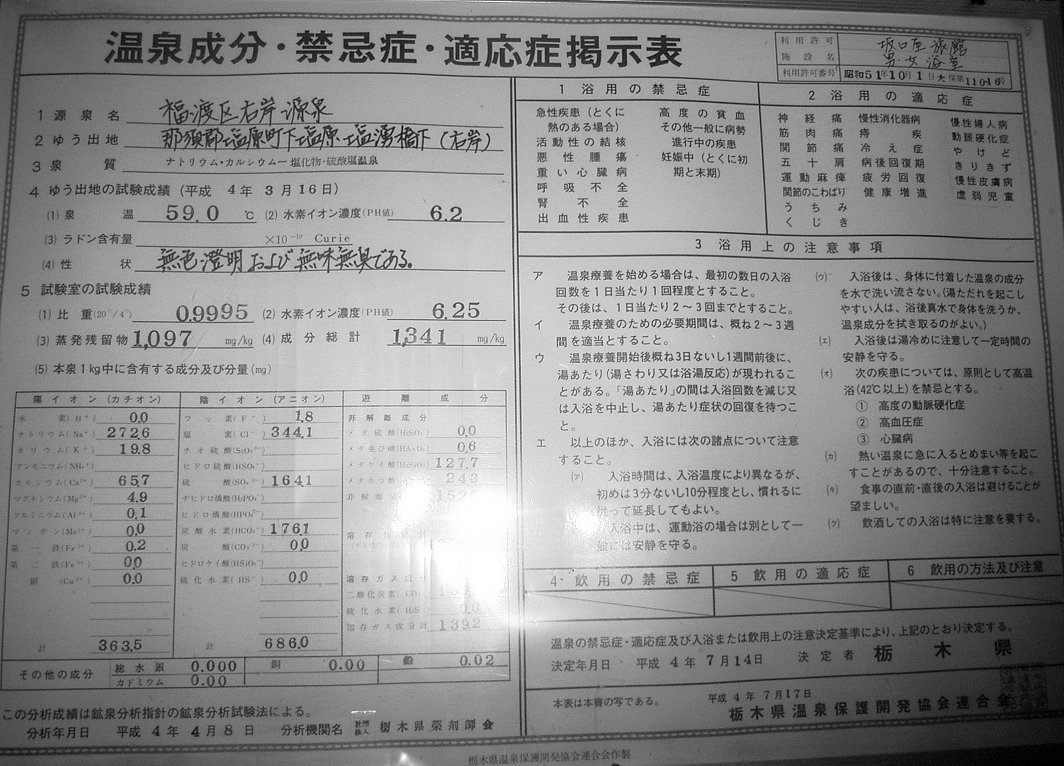 温泉成分・禁忌症・適応症掲示表
利用許可
施設名
坂口屋旅館
男女浴室
利用許可番号 昭和51年10月1日大保第11016号
1 源泉名 福渡区右岸源泉
2 ゆう出地 那須郡塩原町下塩原塩湧橋下(右岸)
3 泉質 ナトリウム・カルシウムー塩化物・硫酸塩温泉
4 ゆう出地の試験成績(平成 4年 3月16日)
(1) 泉温 59.0 ℃ (2) 水素イオン濃度(PH値) 6.2
(3) ラドン含有量 ×10⁻¹⁰ Curie
(4) 性状 無色澄明および無味無臭である。
5 試験室の試験成績
(1) 比重(20°/4°) 0.9995 (2) 水素イオン濃度(PH値) 6.25
(3) 蒸発残留物 1,097 mg/kg (4) 成分総計 1,341 mg/kg
(5) 本泉1kg中に含有する成分及び分量(mg)
陽イオン(カチオン)
水素(H⁺) 0.0
ナトリウム(Na⁺) 272.6
カリウム(K⁺) 19.8
アンモニウム(NH₄⁺)
カルシウム(Ca²⁺) 65.7
マグネシウム(Mg²⁺) 4.9
アルミニウム(Al³⁺) 0.1
マンガン(Mn²⁺) 0.0
第一鉄(Fe²⁺) 0.2
第二鉄(Fe³⁺) 0.0
銅(Cu²⁺) 0.0
計 363.5
陰イオン(アニオン)
フッ素(F⁻) 1.8
塩素(Cl⁻) 344.1
チオ硫酸(S₂O₃²⁻)
ヒドロ硫酸(HSO₄⁻)
硫酸(SO₄²⁻) 164.1
ヂヒドロ燐酸(H₂PO₄⁻)
ヒドロ燐酸(HPO₄²⁻)
炭酸水素(HCO₃⁻) 176.1
炭酸(CO₃²⁻) 0.0
ヒドロケイ酸(HSiO₃⁻)
硫化水素(HS⁻) 0.0
計 686.0
遊離成分
非解離成分
メタ硫酸(H₂SO₄) 0.0
メタ亜ひ酸(HAsO₂) 0.6
メタケイ酸(H₂SiO₃) 127.7
メタホウ酸 24.3
非解離
溶存
溶存ガス成分
二酸化炭素(CO₂)
硫化水素(H₂S) 0.0
溶存ガス成分計 139.2
その他の成分 総水銀 0.000 銅 0.00 鉛 0.02
カドミウム 0.00
この分析成績は鉱泉分析指針の鉱泉分析試験法による。
分析年月日 平成 4年 4月 8日 分析機関名 社団法人 栃木県薬剤師会
1 浴用の禁忌症
急性疾患(とくに
熱のある場合)
活動性の結核
悪性腫瘍
重い心臓病
呼吸不全
腎不全
出血性疾患
高度の貧血
その他一般に病勢
進行中の疾患
妊娠中(とくに初
期と末期)
2 浴用の適応症
神経痛 慢性消化器病 慢性婦人病
筋肉痛 痔疾 動脈硬化症
関節痛 冷え症 やけど
五十肩 病後回復期 きりきず
運動麻痺 疲労回復 慢性皮膚病
関節のこわばり 健康増進 虚弱児童
うちみ
くじき
3 浴用上の注意事項
ア 温泉療養を始める場合は、最初の数日の入浴
回数を1日当たり1回程度とすること。
その後は、1日当たり2〜3回までとすること。
イ 温泉療養のための必要期間は、概ね2〜3週
間を適当とすること。
ウ 温泉療養開始後概ね3日ないし1週間前後に、
湯あたり(湯さわり又は浴湯反応)が現われるこ
とがある。「湯あたり」の間は入浴回数を減じ又
は入浴を中止し、湯あたり症状の回復を待つこ
と。
エ 以上のほか、入浴には次の諸点について注意
すること。
(ア) 入浴時間は、入浴温度により異なるが、
初めは3分ないし10分程度とし、慣れるに
従って延長してもよい。
入浴中は、運動浴の場合は別として一
般には安静を守る。
(ウ) 入浴後は、身体に付着した温泉の成分
を水で洗い流さない。(湯ただれを起こし
やすい人は、浴後真水で身体を洗うか、
温泉成分を拭き取るのがよい。)
(エ) 入浴後は湯冷めに注意して一定時間の
安静を守る。
(オ) 次の疾患については、原則として高温
浴(42℃以上)を禁忌とする。
① 高度の動脈硬化症
② 高血圧症
③ 心臓病
(カ) 熱い温泉に急に入るとめまい等を起こ
すことがあるので、十分注意すること。
(キ) 食事の直前・直後の入浴は避けることが
望ましい。
(ク) 飲酒しての入浴は特に注意を要する。
4 飲用の禁忌症
5 飲用の適応症
6 飲用の方法及び注意
温泉の禁忌症・適応症及び入浴または飲用上の注意決定基準により、上記のとおり決定する。
決定年月日 平成 4年 7月14日 決定者 栃木県
本表は本書の写である。 平成 4年 7月17日
栃木県温泉保護開発協会連合会
栃木県温泉保護開発協会連合会作製